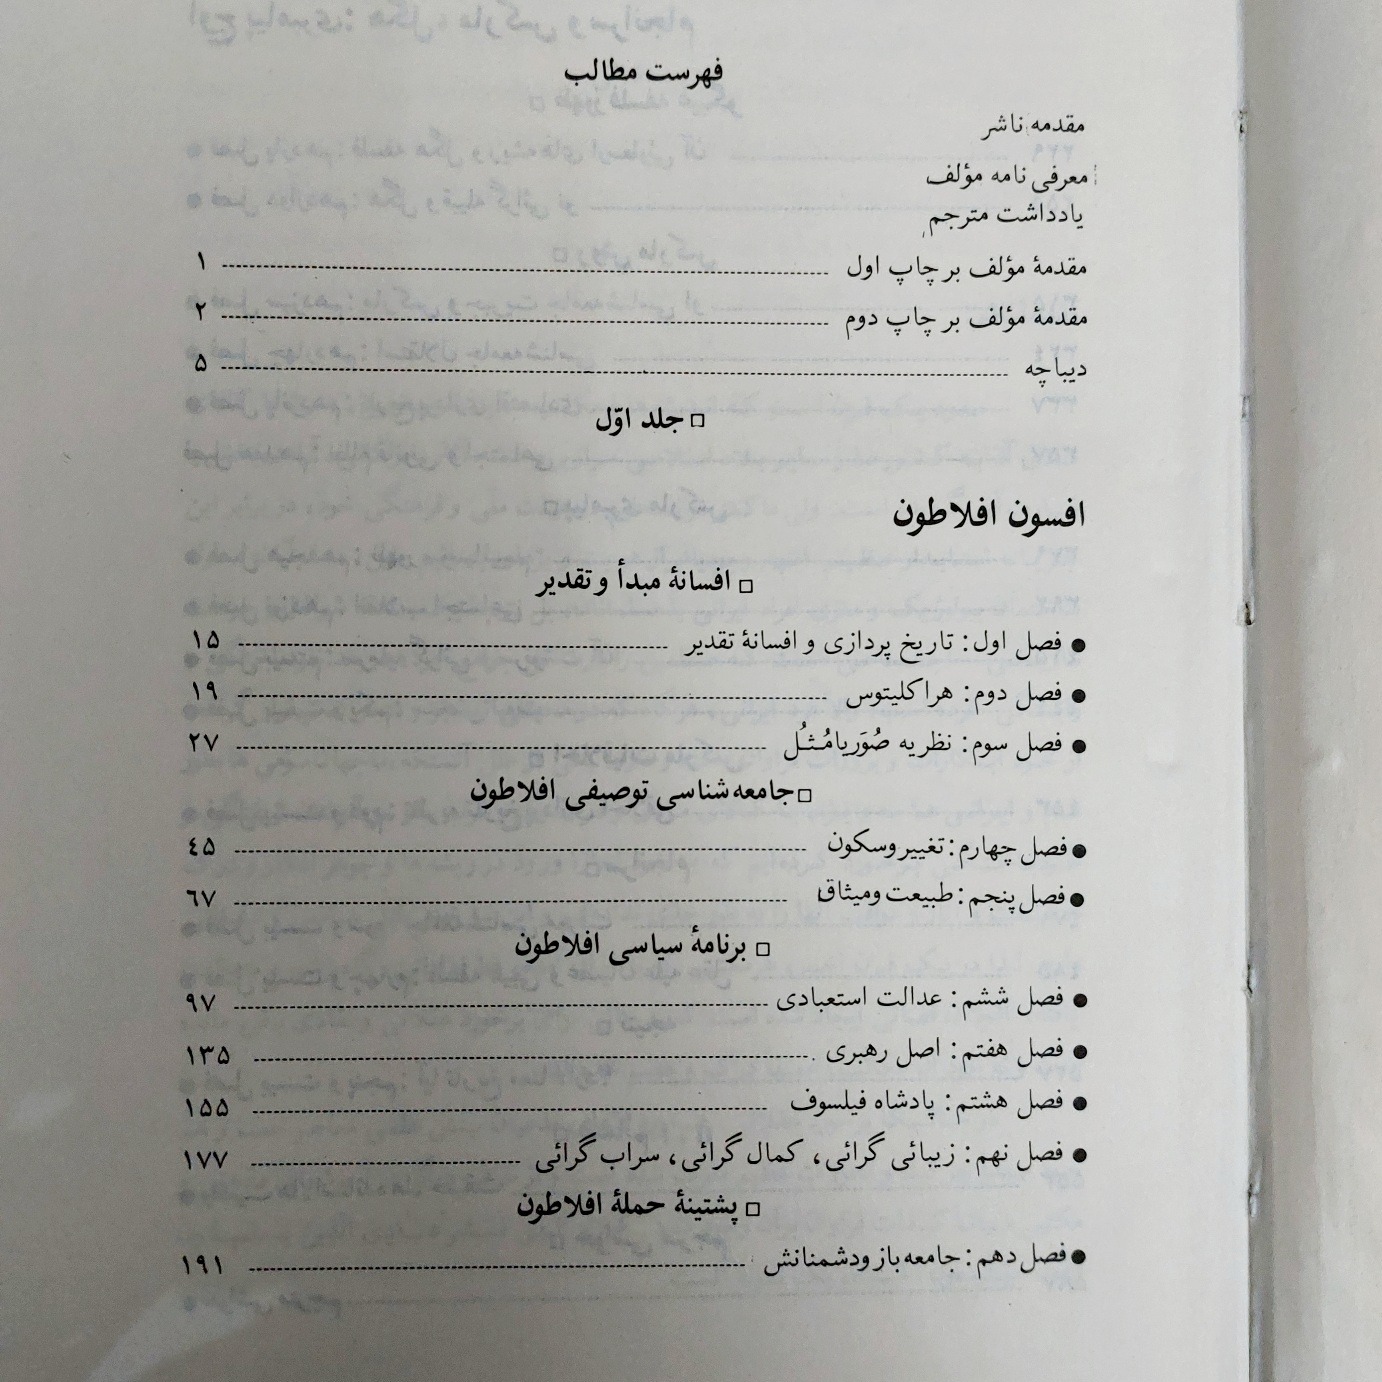 فهرست مطالب
مقدمه ناشر
معرفی نامه مؤلف
یادداشت مترجم
مقدمهٔ مؤلف بر چاپ اول ۱
مقدمهٔ مؤلف بر چاپ دوم ۲
دیباچه ۵
□ جلد اوّل
افسون افلاطون
□ افسانهٔ مبدأ و تقدیر
● فصل اول: تاریخ پردازی و افسانهٔ تقدیر ۱۵
● فصل دوم: هراکلیتوس ۱۹
● فصل سوم: نظریه صُوَر یا مُثُل ۲۷
□ جامعه شناسی توصیفی افلاطون
● فصل چهارم: تغییر و سکون ٤۵
● فصل پنجم: طبیعت و میثاق ٦۷
□ برنامهٔ سیاسی افلاطون
● فصل ششم: عدالت استعبادی ۹۷
● فصل هفتم: اصل رهبری ۱۳۵
● فصل هشتم: پادشاه فیلسوف ۱۵۵
● فصل نهم: زیبائی گرائی، کمال گرائی، سراب گرائی ۱۷۷
□ پشتینهٔ حملهٔ افلاطون
● فصل دهم: جامعه باز و دشمنانش ۱۹۱